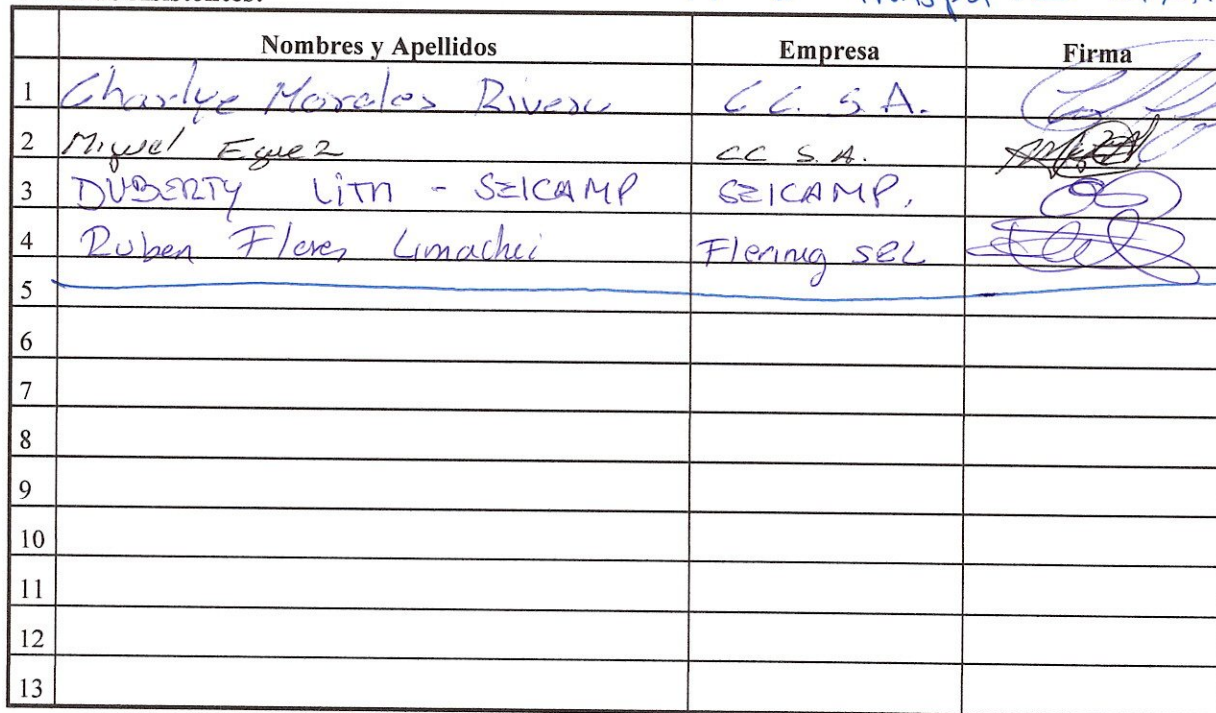 Nombres y Apellidos Empresa Firma
1 Charlye Morales Rivera C C. S. A.
2 Miguel Eguez CC S.A.
3 DUBERTY LITA - SEICAMP SEICAMP.
4 Ruben Flores Limachi
5
6
7
8
9
10
11
12
13